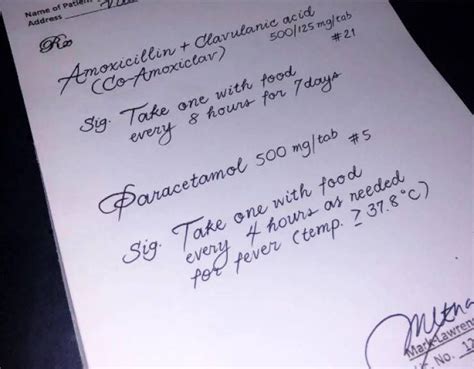 Name of Patient
Address
Rx
Amoxicillin + Clavulanic acid
(Co-Amoxiclav) 500/125 mg/tab
#21
Sig. Take one with food
every 8 hours for 7days
Paracetamol 500 mg/tab #5
Sig. Take one with food
every 4 hours as needed
for fever (temp. ≥ 37.8°C)
No.